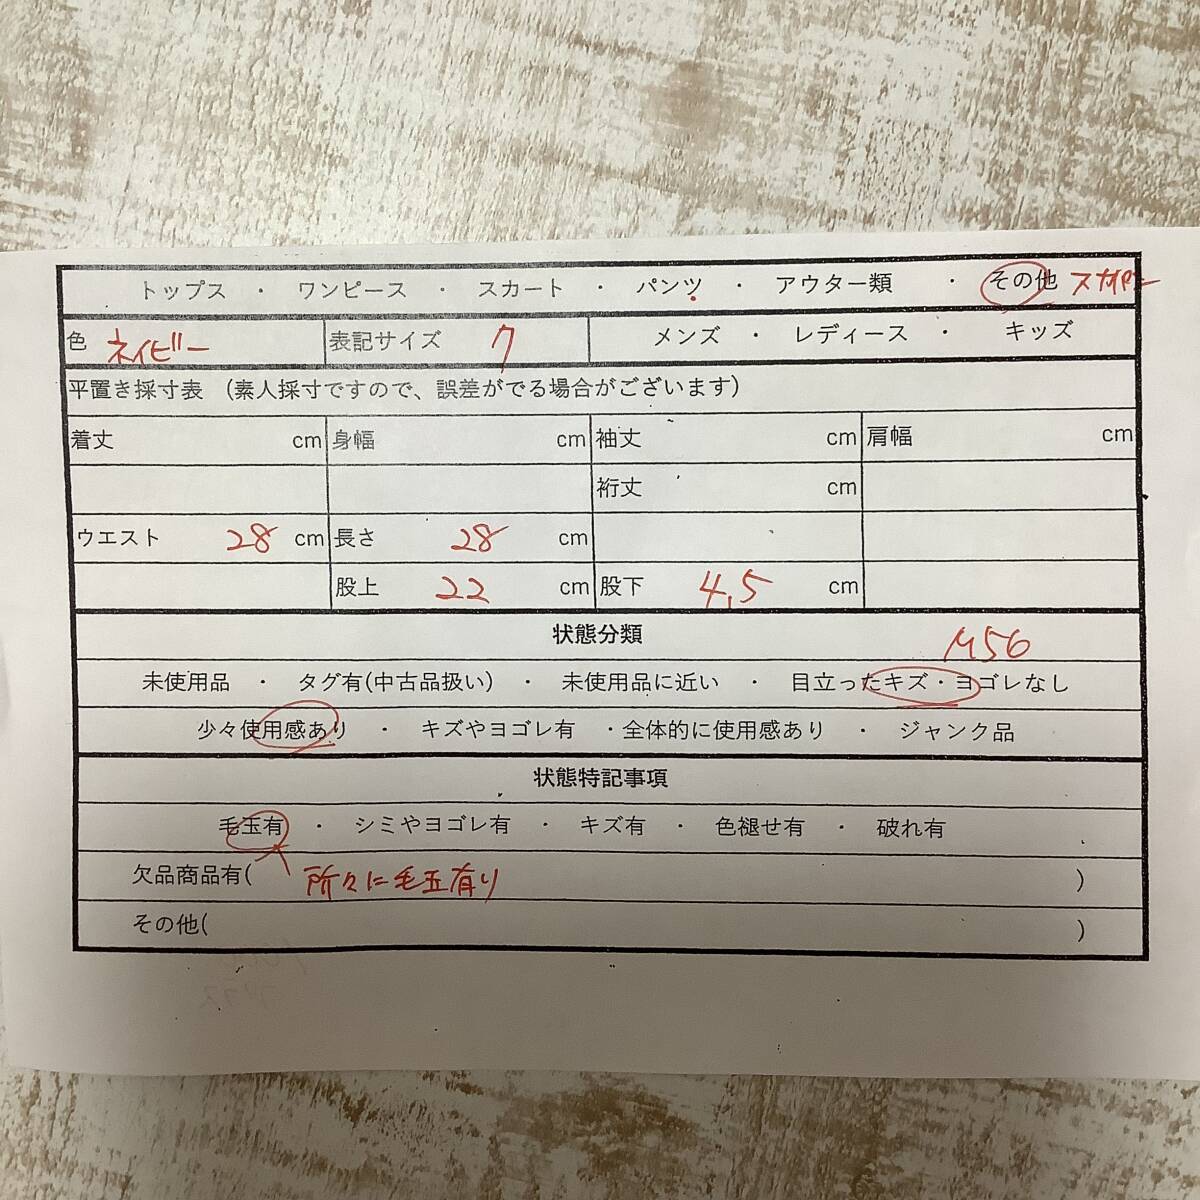 トップス ・ ワンピース ・ スカート ・ パンツ ・ アウター類 ・ その他
色 ネイビー 表記サイズ 7 メンズ ・ レディース ・ キッズ
平置き採寸表 (素人採寸ですので、誤差がでる場合がございます)
着丈 cm 身幅 cm 袖丈 cm 肩幅 cm
裄丈 cm
ウエスト 28 cm 長さ 28 cm
股上 22 cm 股下 4.5 cm
状態分類
M56
未使用品 ・ タグ有(中古品扱い) ・ 未使用品に近い ・ 目立ったキズ・ヨゴレなし
少々使用感あり ・ キズやヨゴレ有 ・全体的に使用感あり ・ ジャンク品
状態特記事項
毛玉有 ・ シミやヨゴレ有 ・ キズ有 ・ 色褪せ有 ・ 破れ有
欠品商品有( 所々に毛玉有り )
その他( )